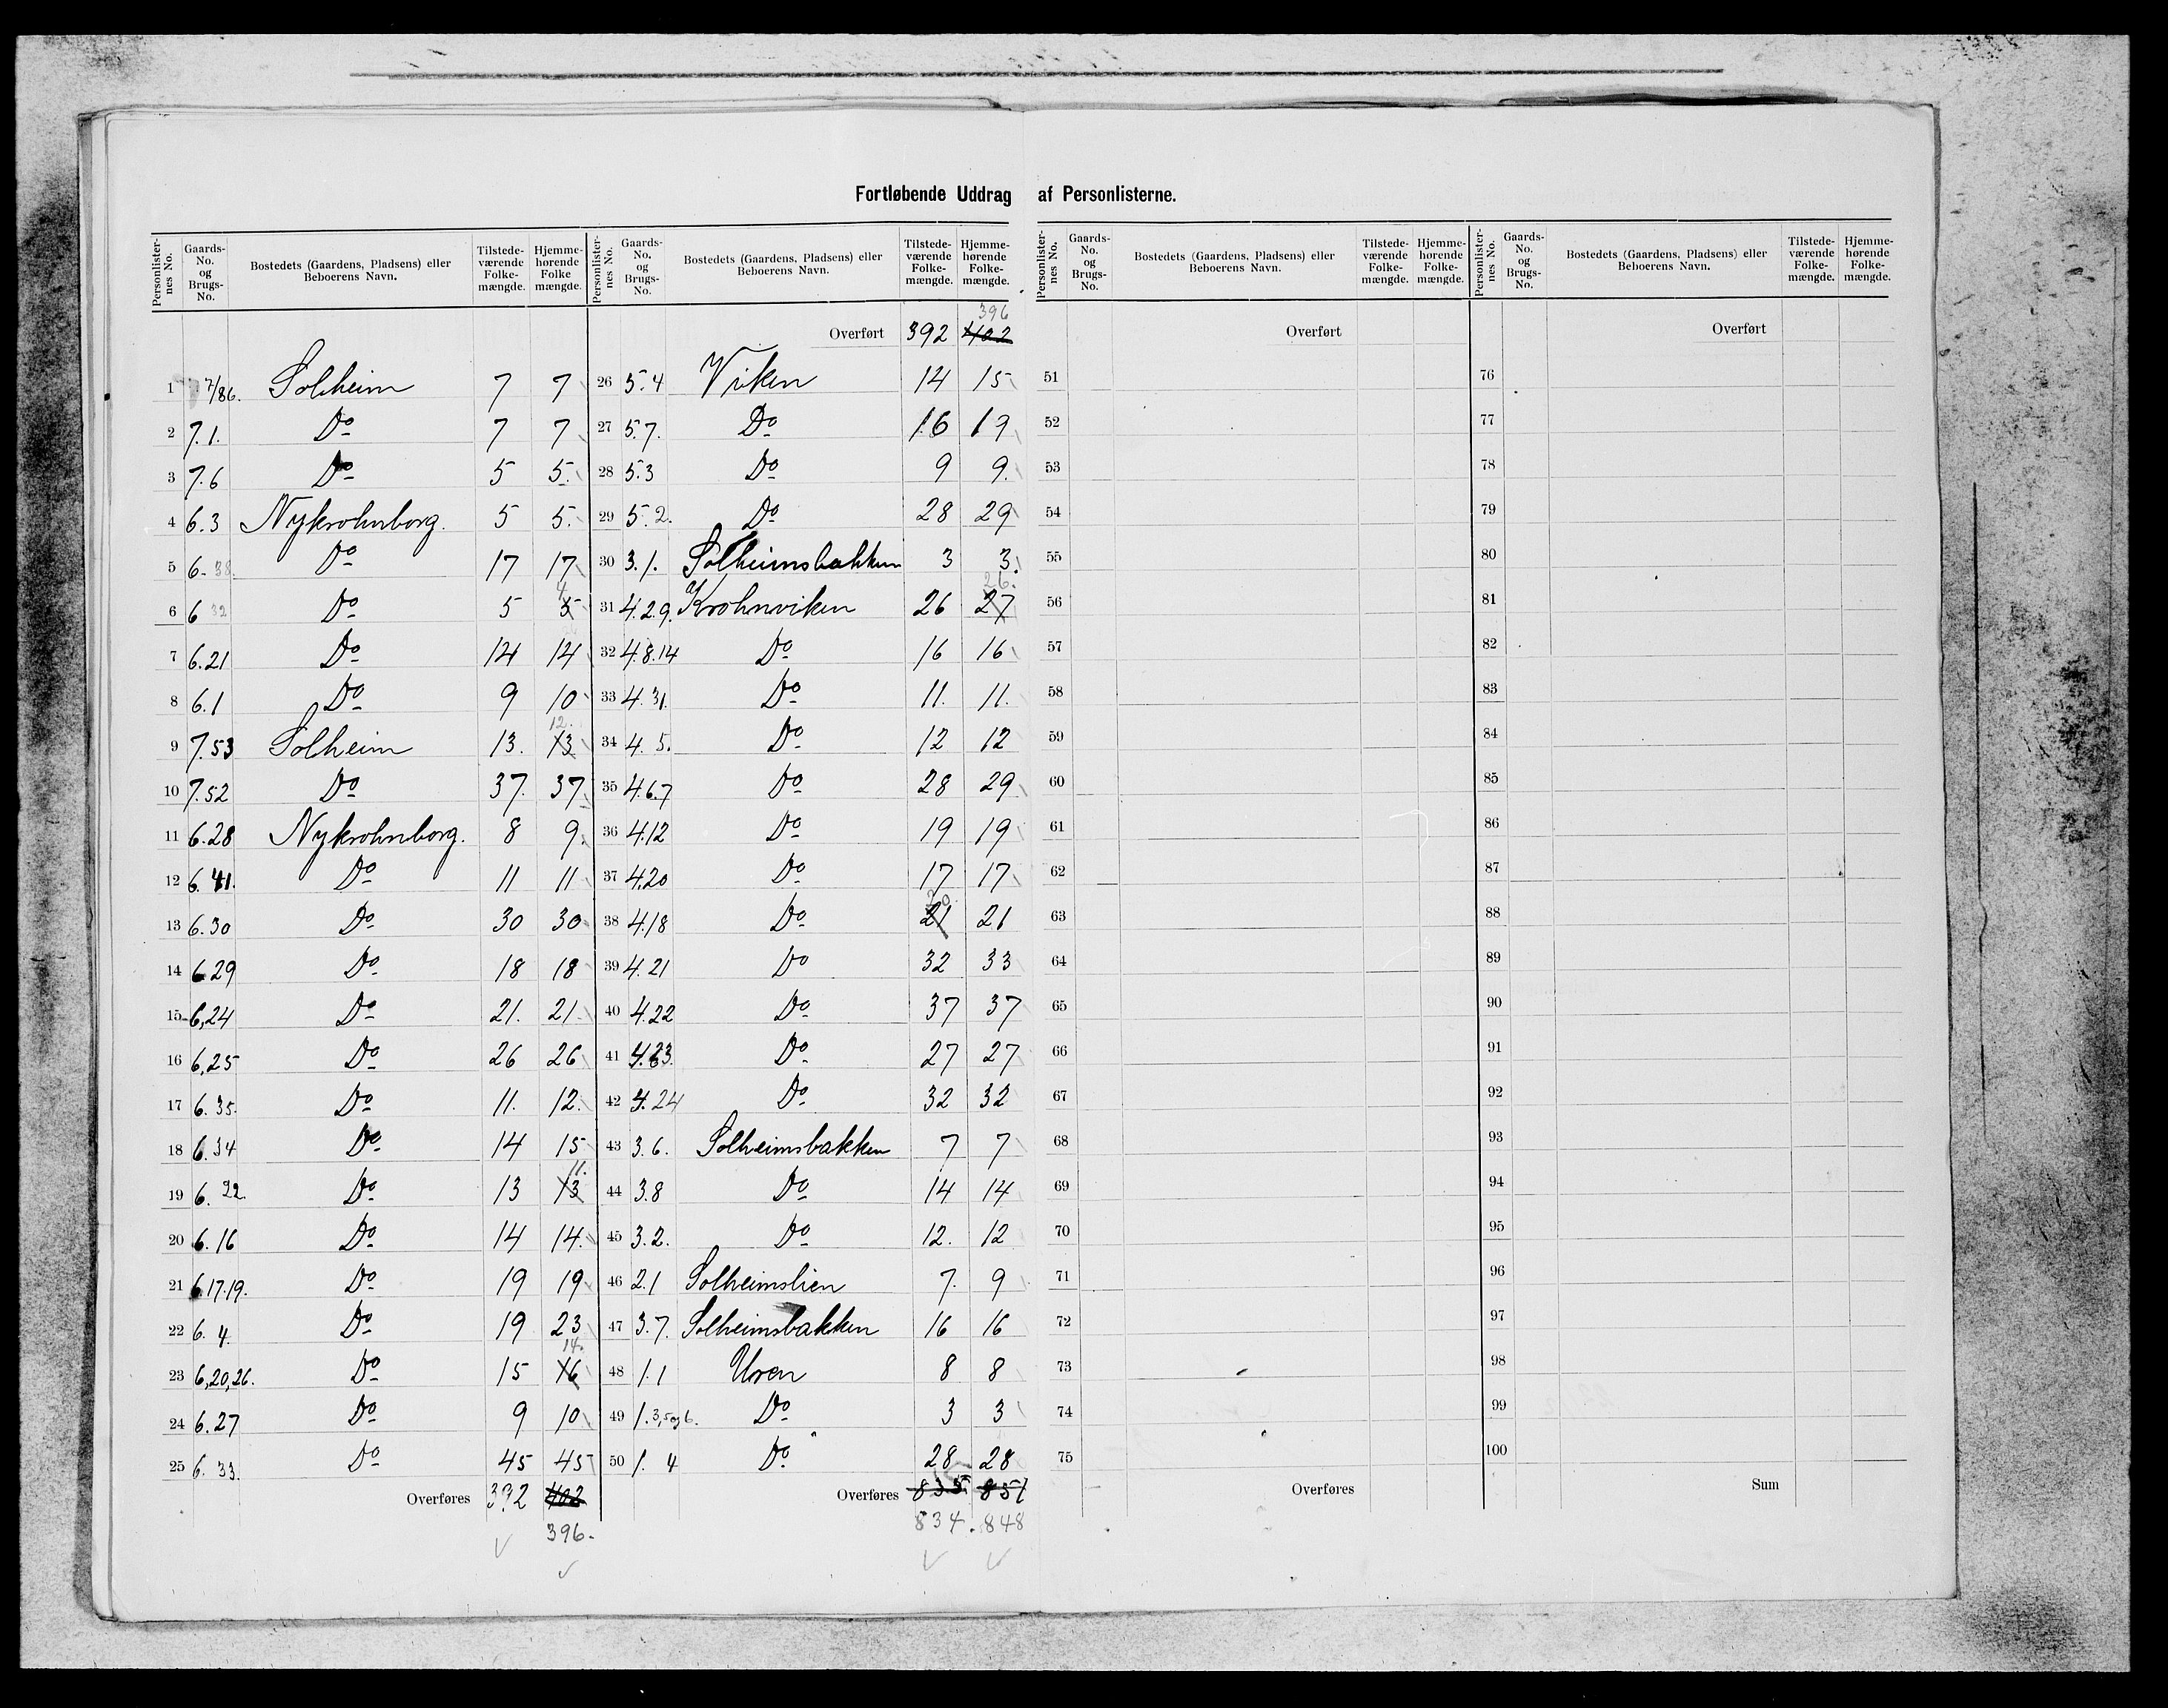 Fortløbende Uddrag af Personlisterne.
Personlisternes No. | Gaards-No. og Brugs-No. | Bostedets (Gaardens, Pladsens) eller Beboerens Navn. | Tilstedeværende Folkemængde. | Hjemmehørende Folkemængde.
1 7/86. Solheim 7 7
2 7.1. Do 7 7
3 7.6 Do 5 5.
4 6.3 Nykrohnborg. 5 5.
5 6.38. Do 17 17
6 6 32 Do 5 5 4
7 6.21 Do 14 14
8 6.1 Do 9 10
9 7.53 Solheim 13. 13 12.
10 7.52 Do 37. 37
11 6.28 Nykrohnborg. 8 9.
12 6.41. Do 11 11
13 6.30 Do 30 30
14 6.29 Do 18 18
15 6,24 Do 21. 21
16 6,25 Do 26 26
17 6.35. Do 11. 12.
18 6.34 Do 14 15
19 6. 22. Do 13 13 11.
20 6.16 Do 14 14.
21 6.17.19. Do 19 19
22 6.4. Do 19 23
23 6,20,26. Do 15 16 14.
24 6.27 Do 9 10
25 6.33. Do 45 45
Overføres 392 402
396.
Overført 392 402 396
26 5.4 Viken 14 15
27 5.7. Do 16 19
28 5.3 Do 9 9.
29 5.2. Do 28 29
30 3.1. Solheimsbakken 3 3.
31 4.29. Krohnviken 26 27 26.
32 4.8.14 Do 16 16
33 4.31. Do 11. 11.
34 4.5. Do 12 12
35 4.6.7 Do 28 29
36 4.12 Do 19 19
37 4.20 Do 17 17
38 4.18 Do 21 20. 21
39 4.21 Do 32 33
40 4.22 Do 37 37
41 4.23. Do 27 27
42 4.24 Do 32 32
43 3.6. Solheimsbakken 7 7
44 3.8 Do 14 14
45 3.2. Do 12. 12
46 2.1 Solheimslien 7. 9
47 3.7. Solheimsbakken 16 16
48 1.1 Uren 8 8
49 1.3,5 og 6. Do 3 3
50 1.4 Do 28 28
Overføres 835 851
834. 848
Personlisternes No. | Gaards-No. og Brugs-No. | Bostedets (Gaardens, Pladsens) eller Beboerens Navn. | Tilstedeværende Folkemængde. | Hjemmehørende Folkemængde.
Overført
51
52
53
54
55
56
57
58
59
60
61
62
63
64
65
66
67
68
69
70
71
72
73
74
75
Overføres
Overført
76
77
78
79
80
81
82
83
84
85
86
87
88
89
90
91
92
93
94
95
96
97
98
99
100
Sum